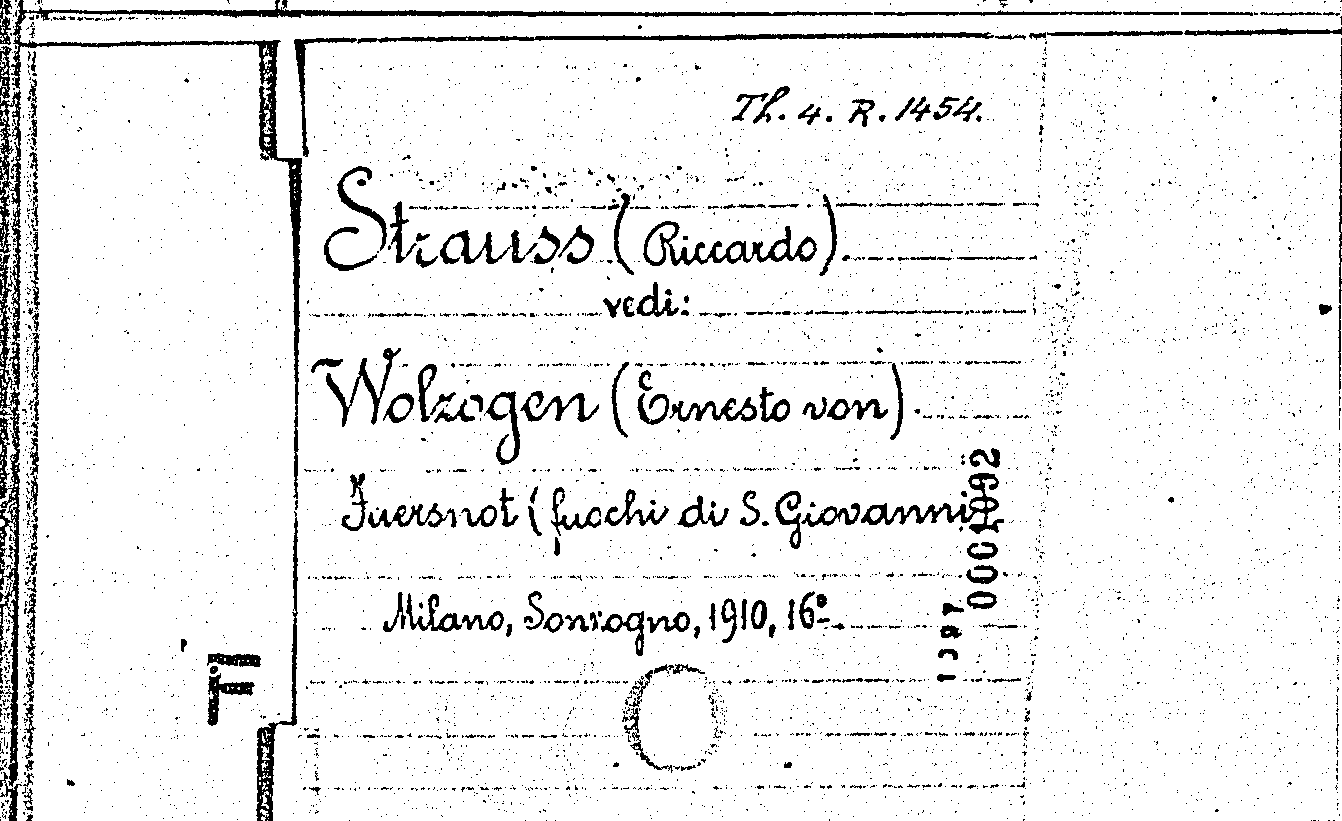 Th. 4. R. 1454.
Strauss (Riccardo).
vedi:
Wolzogen (Ernesto von).
Fuersnot (fuochi di S. Giovanni)
Milano, Sonzogno, 1910, 16º.
0001092
1397
F